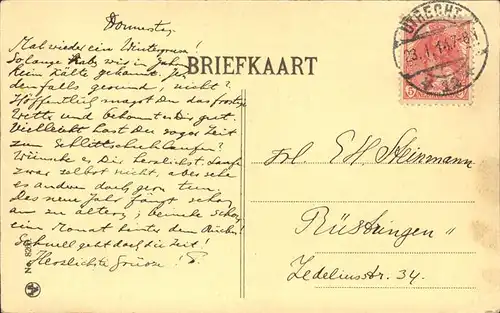 Donnerstag
Mal wieder ein Wintergruss!
So lange hab wir in Jahren
kein Kälte gekannt. Je-
denfalls gesund, nicht?
Hoffentlich magst Du das frostige
Wetter und bekommt es Dir gut.
Vielleicht hast Du sogar Zeit
zum Schlittschuhlaufen?
Wünsche es Dir herzlichst. Laufe
zwar selbst nicht, aber sehe
es andere doch gern tun.
Das neue Jahr fängt schon
an zu altern; beinahe schon
ein Monat hinter dem Rücken!
Schnell geht doch die Zeit!
Herzlichste Grüsse!
BRIEFKAART
UTRECHT
Frl. EH. Steinmann
Rüstringen "
Zedeliusstr. 34.